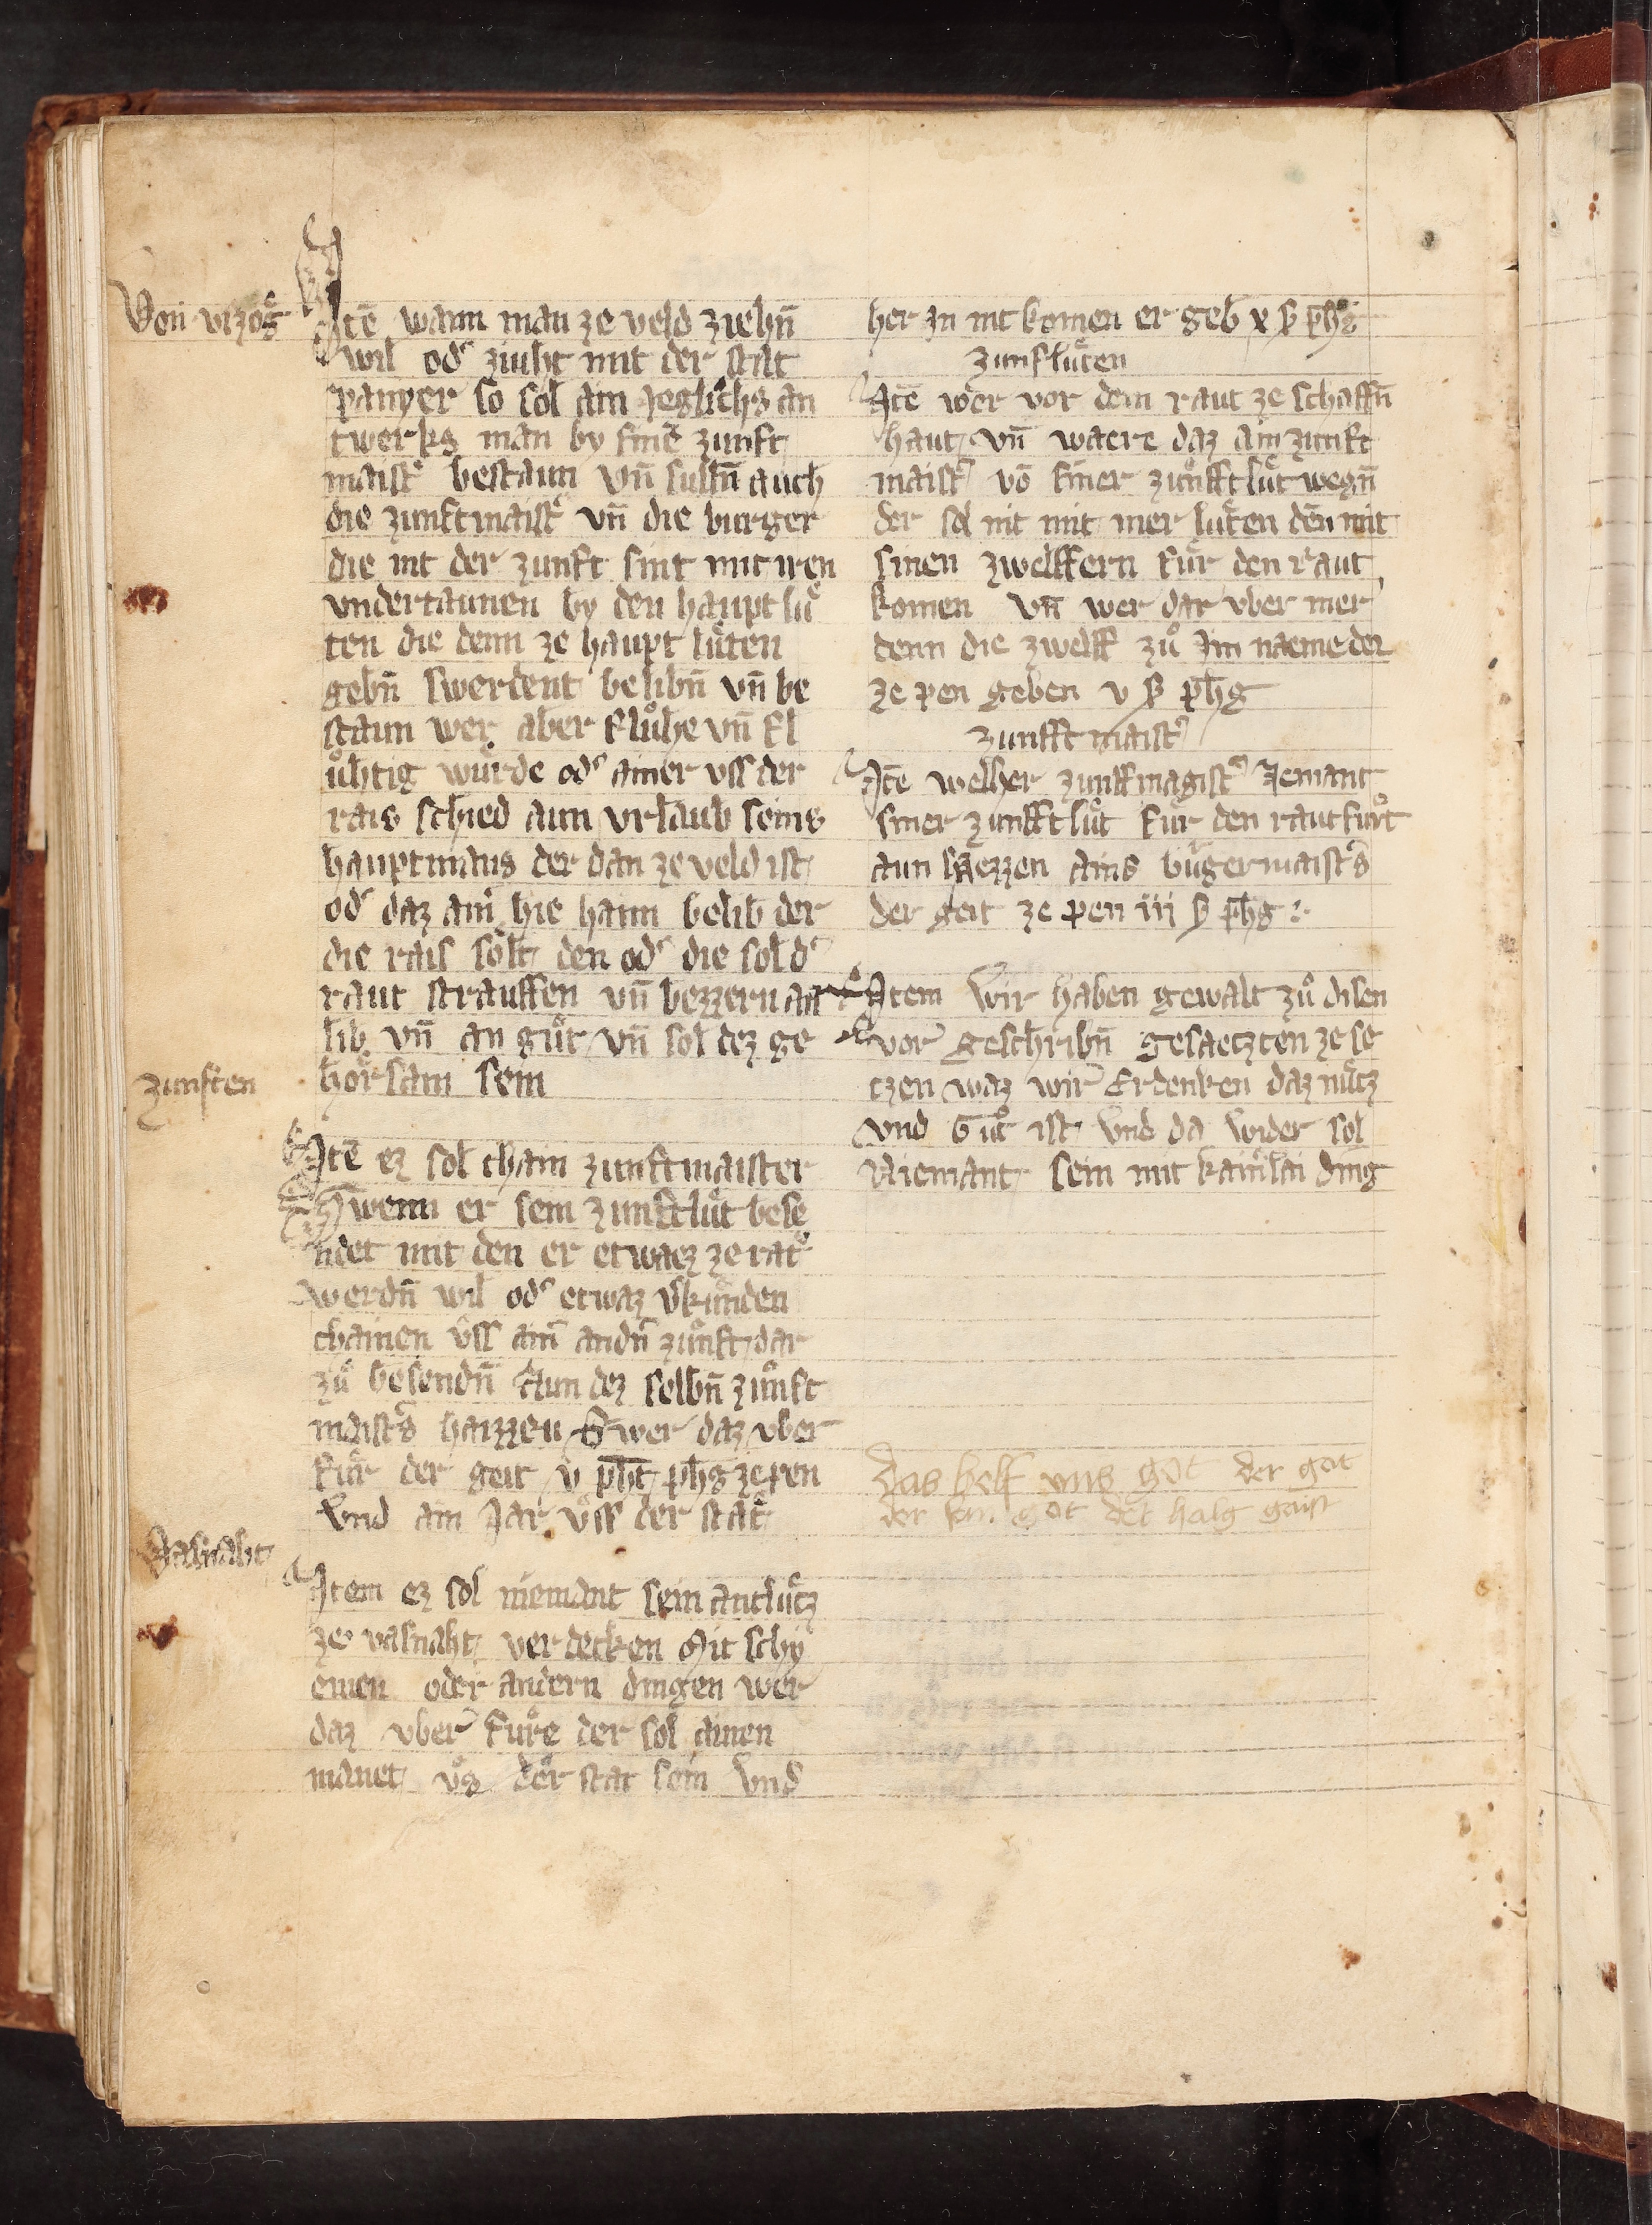 Von vrzog
Jtē wann man ze veld ziehn̄
wil od' ziuht mit der stat
panyer so sol ain Jeglichs an
twerks man by sinē zunft
maist' bestaun vn̄ sulln̄ auch
die zunftmaist' vn̄ die burger
die nit der zunft sint mit iren
vndertaunen by den haupt lu̍
ten die denn ze haupt lüten
gebn̄ swerdent belibn̄ vn̄ be
staun wer aber fluͦhe vn̄ fl
uͦhtig wuͤrde od' ainer vss der
rais schied aun vrlaub seins
hauptmans der dan ze veld ist
od' daz ain' hie haim belib der
die rais solt den od' die sol d'
raut strauffen vn̄ bezzern an
lib vn̄ an guͦt vn̄ sol dez ge
horsam sein
zunften
Jtē ez sol chain zunftmaister
Swenn er sein zunftluͤt bese
ndet mit den er etwaz ze rat
werdn̄ wil od' etwaz v'kunden
chainen vss ain' andn̄ zunft dar
zuͦ besendn̄ Aun dez selbn̄ zunft
maist's haizzen Swer daz vber
fuͤr der geit v pht phg ze pen
Vnd ain Jar vss der stat
Vasnaht
Jtem ez sol niemant sein antlütz
ze vasnaht verdecken Mit schy
emen oder andern dingen wer
daz vber fuͤre der sol ainen
manet vz der stat sein Vnd
her in nit komen er geb x ß phg
zunfluͤten
Jtē wer vor dem raut ze schaffn̄
haut vn̄ waere daz ain zunft
maist' vō siner zunfftluͤt wegn̄
der sol nit mit mer luͤten den̄ mit
sinen zwelffern fuͤr den raut
komen vn̄ wer dar vber mer
denn die zwelff zuͦ Jm naeme der
ze pen geben v ß phg
zunfft maist'
Jtē welher zunffmagist' Jemant
siner zunfftluͤt fuͤr den raut fuͤrt
aun haezzen ains bu'germaist's
der geit ze pen iij ß phg :·
Jtem Wir haben gewalt zuͦ disen
vor geschribn̄ gesaetzten ze se
tzen waz wir Erdenken daz nuͤtz
vnd Guͦt ist Vnd da wider sol
Niemant sein mit kainlai ding
Das helf vns got der got
der sun got der halg gaist